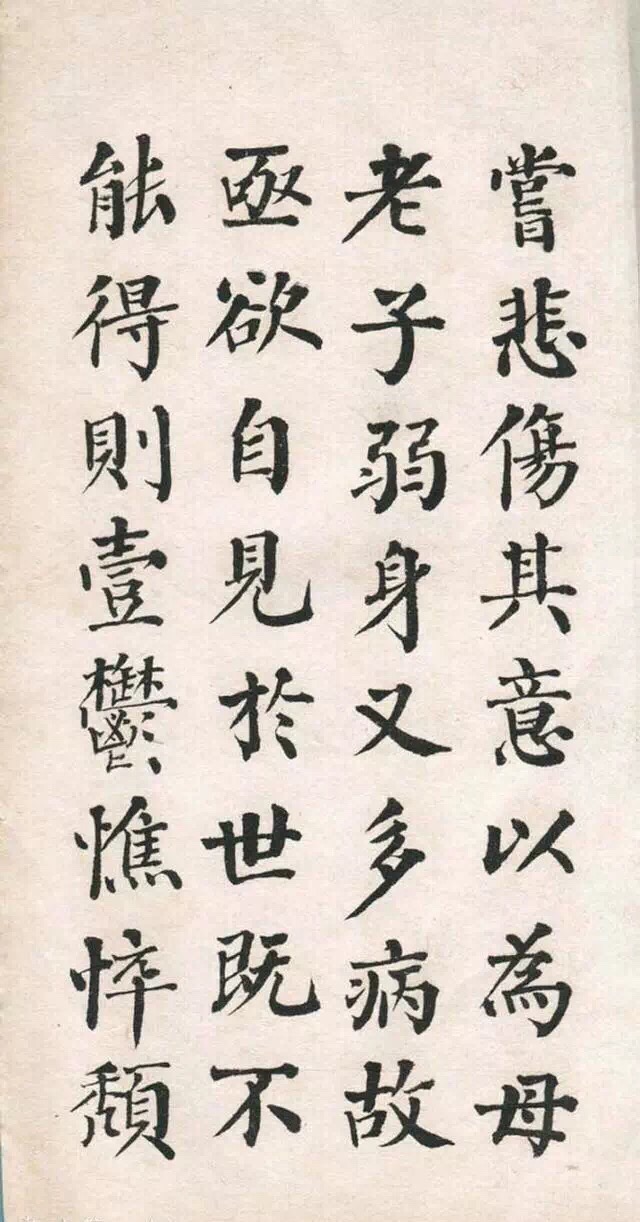 嘗悲傷其意以為母
老子弱身又多病故
亟欲自見於世既不
能得則壹鬱憔悴頹